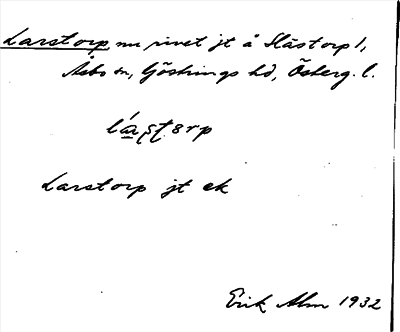 Larstorp nu rivet jt å Håstorp 1,
Åsbo sn, Göstrings hd, Österg. l.
Larstorp jt ek
Erik Alm 1932